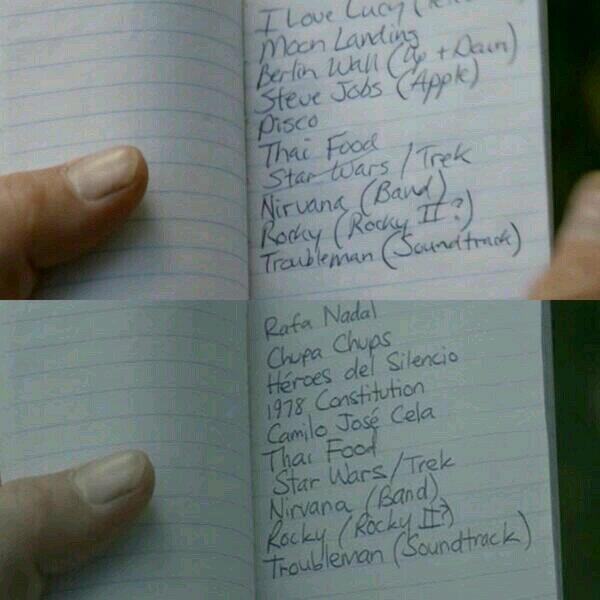 I Love Lucy
Moon Landing
Berlin Wall (Up + Down)
Steve Jobs (Apple)
Disco
Thai Food
Star Wars / Trek
Nirvana (Band)
Rocky (Rocky II?)
Troubleman (Soundtrack)
Rafa Nadal
Chupa Chups
Héroes del Silencio
1978 Constitution
Camilo José Cela
Thai Food
Star Wars/Trek
Nirvana (Band)
Rocky (Rocky II?)
Troubleman (Soundtrack)